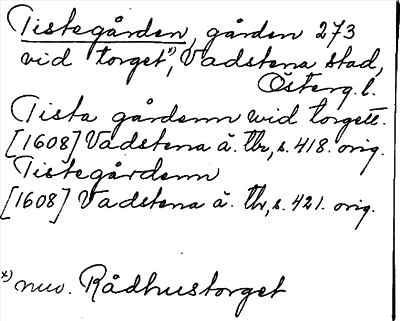 Tistegården, gården 273
vid torget x), Vadstena stad,
Österg. l.
Tista gårdenn wid torgett.
[1608] Vadstena ä. Tb, s. 418. orig.
Tistegårdenn
[1608] Vadstena ä. Tb, s. 421. orig.
x) nuv. Rådhustorget